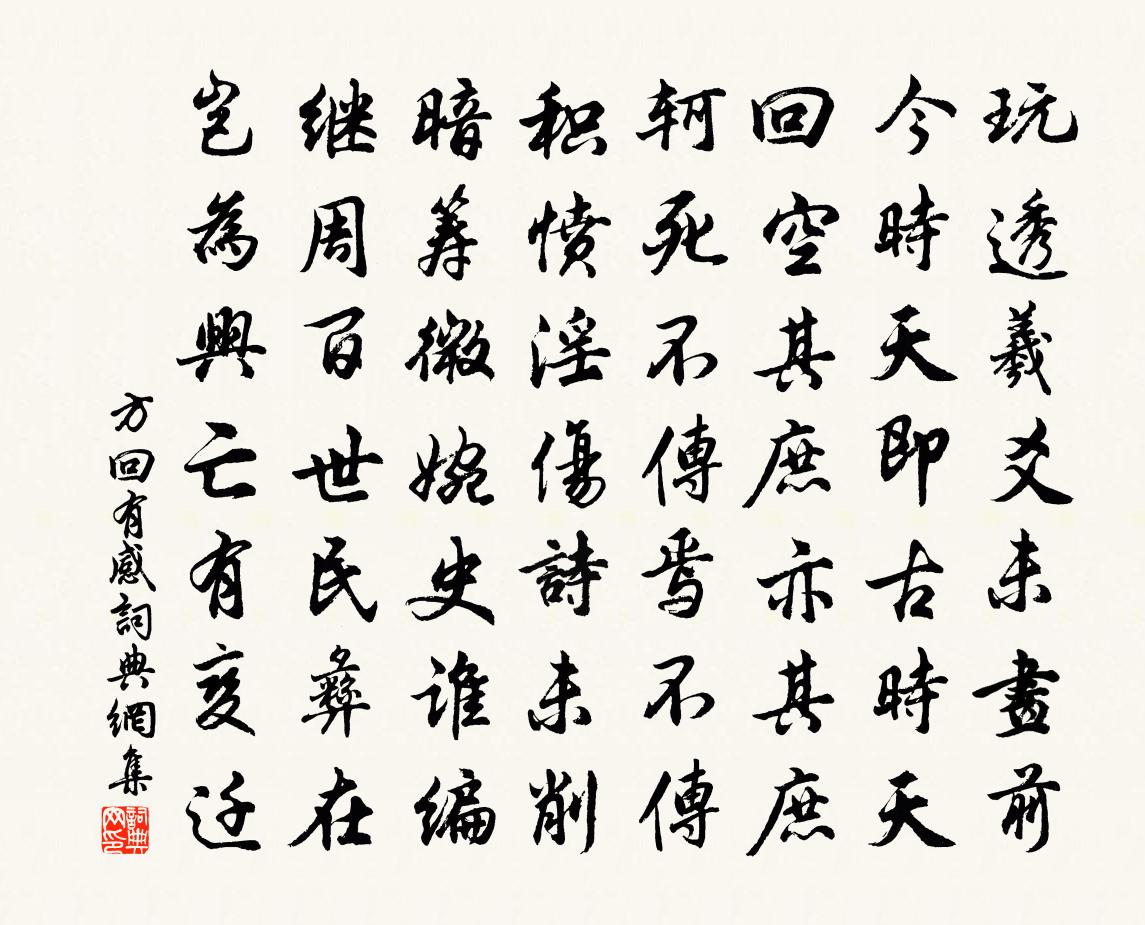 玩透羲爻未畫前
今時天即古時天
回空其庶亦其庶
軻死不傳焉不傳
积憤淫傷詩未削
暗筹微婉史谁编
继周百世民彝在
岂為興亡有变迁
方回有感詞典網集
詞典网印